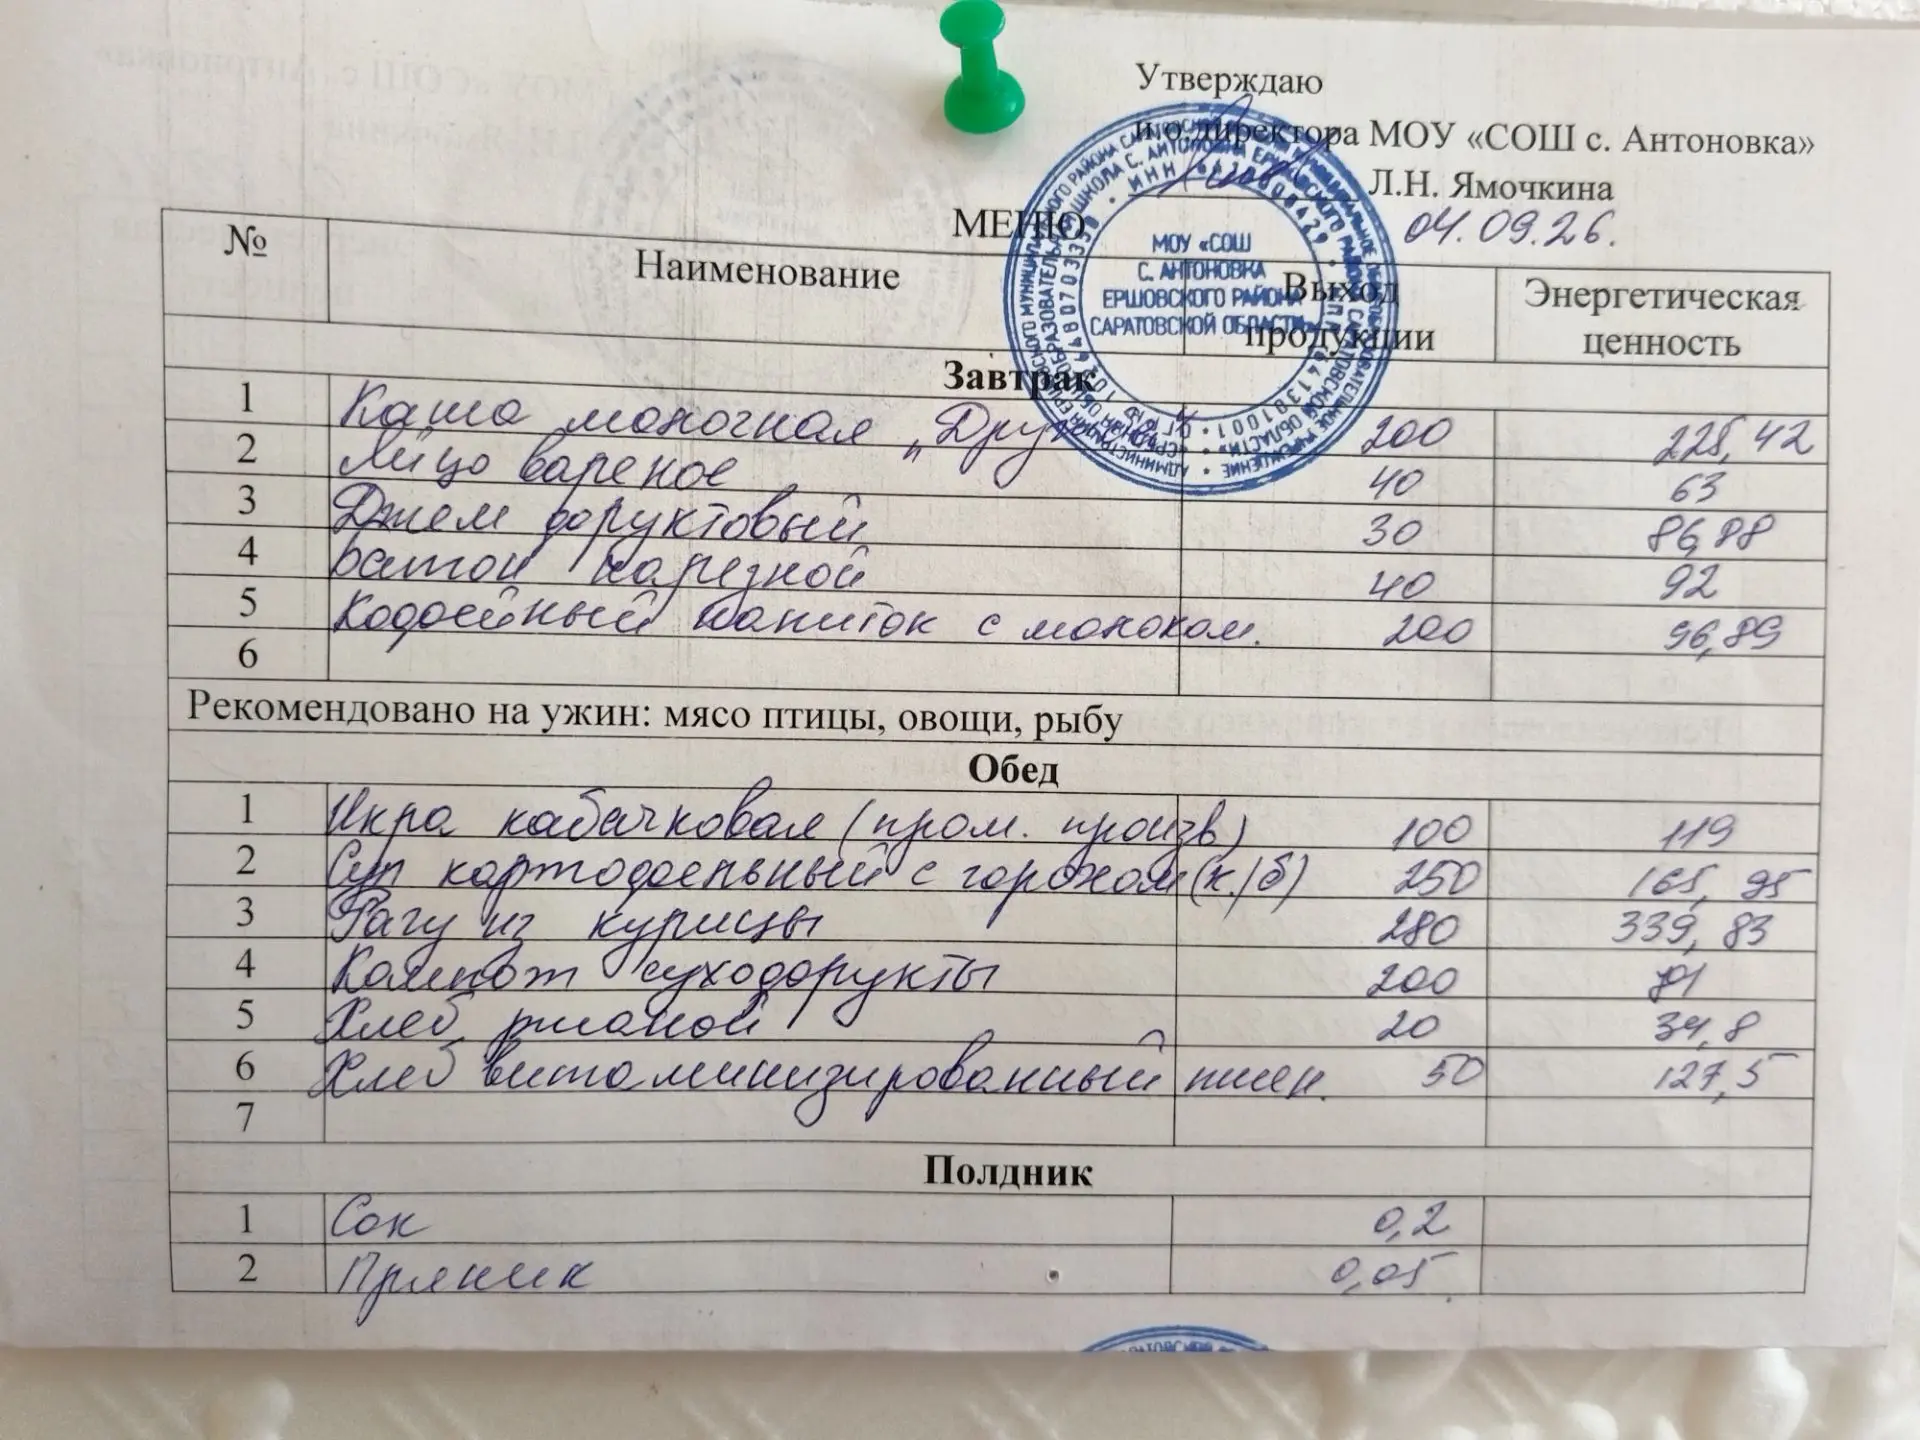 Утверждаю
и.о.директора МОУ «СОШ с. Антоновка»
Л.Н. Ямочкина
МЕНЮ 04.09.26.
№ Наименование Выход продукции Энергетическая ценность
МОУ «СОШ
С. АНТОНОВКА
ЕРШОВСКОГО РАЙОНА
САРАТОВСКОЙ ОБЛАСТИ»
Завтрак
1 Каша молочная „Дружба" 200 225,42
2 Яйцо вареное 40 63
3 Джем фруктовый 30 86,88
4 Батон нарезной 40 92
5 Кофейный напиток с молоком. 200 96,89
6
Рекомендовано на ужин: мясо птицы, овощи, рыбу
Обед
1 Икра кабачковая (пром. произв) 100 119
2 Суп картофельный с горохом (к/б) 250 165,95
3 Рагу из курицы 280 339,83
4 Компот сухофрукты 200 81
5 Хлеб ржаной 20 34,8
6 Хлеб витаминизированный пшен. 50 127,5
7
Полдник
1 Сок 0,2
2 Пряник 0,05